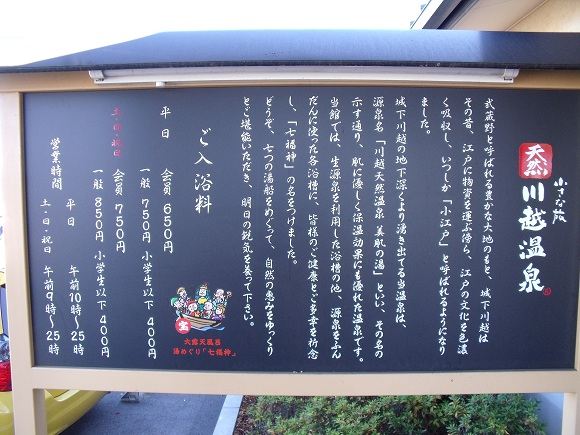 小さな旅
天然
川越温泉
武蔵野と呼ばれる豊かな大地のもと、城下川越は
その昔、江戸に物資を運ぶ傍ら、江戸の文化を色濃
く吸収し、いつしか「小江戸」と呼ばれるようになり
ました。
城下川越の地下深くより湧き出てる当温泉は、
源泉名「川越天然温泉 美肌の湯」といい、その名の
示す通り、肌に優しく保温効果にも優れた温泉です。
当館では、生源泉を利用した浴槽の他、源泉をふん
だんに使った各浴槽に、皆様のご健康とご多幸を祈念
し、「七福神」の名をつけました。
どうぞ、七つの湯船をめぐって、自然の恵みをゆっくり
とご堪能いただき、明日の鋭気を養って下さい。
宝
大露天風呂
湯めぐり「七福神」
ご入浴料
平日 会員 650円
一般 750円 小学生以下 400円
土・日・祝日 会員 750円
一般 850円 小学生以下 400円
営業時間 平日 午前10時〜25時
土・日・祝日 午前9時〜25時